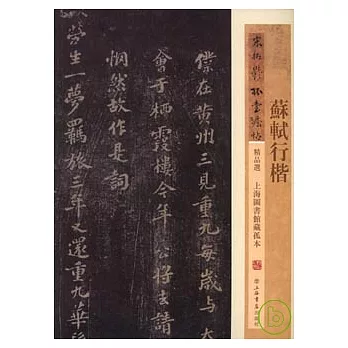 僕在黃州三見重九每歲与太
會于栖霞樓今年公将去請
惘然故作是詞
勞生一夢羈旅三年又還重九華
宋拓
蘇軾行楷
精品選
上海圖書館藏孤本
上海書畫出版社